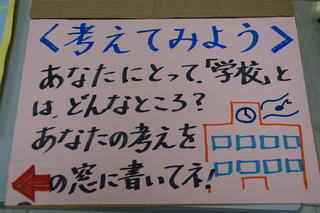 <考えてみよう>
あなたにとって、「学校」と
は、どんなところ?
あなたの考えを
の窓に書いてネ!